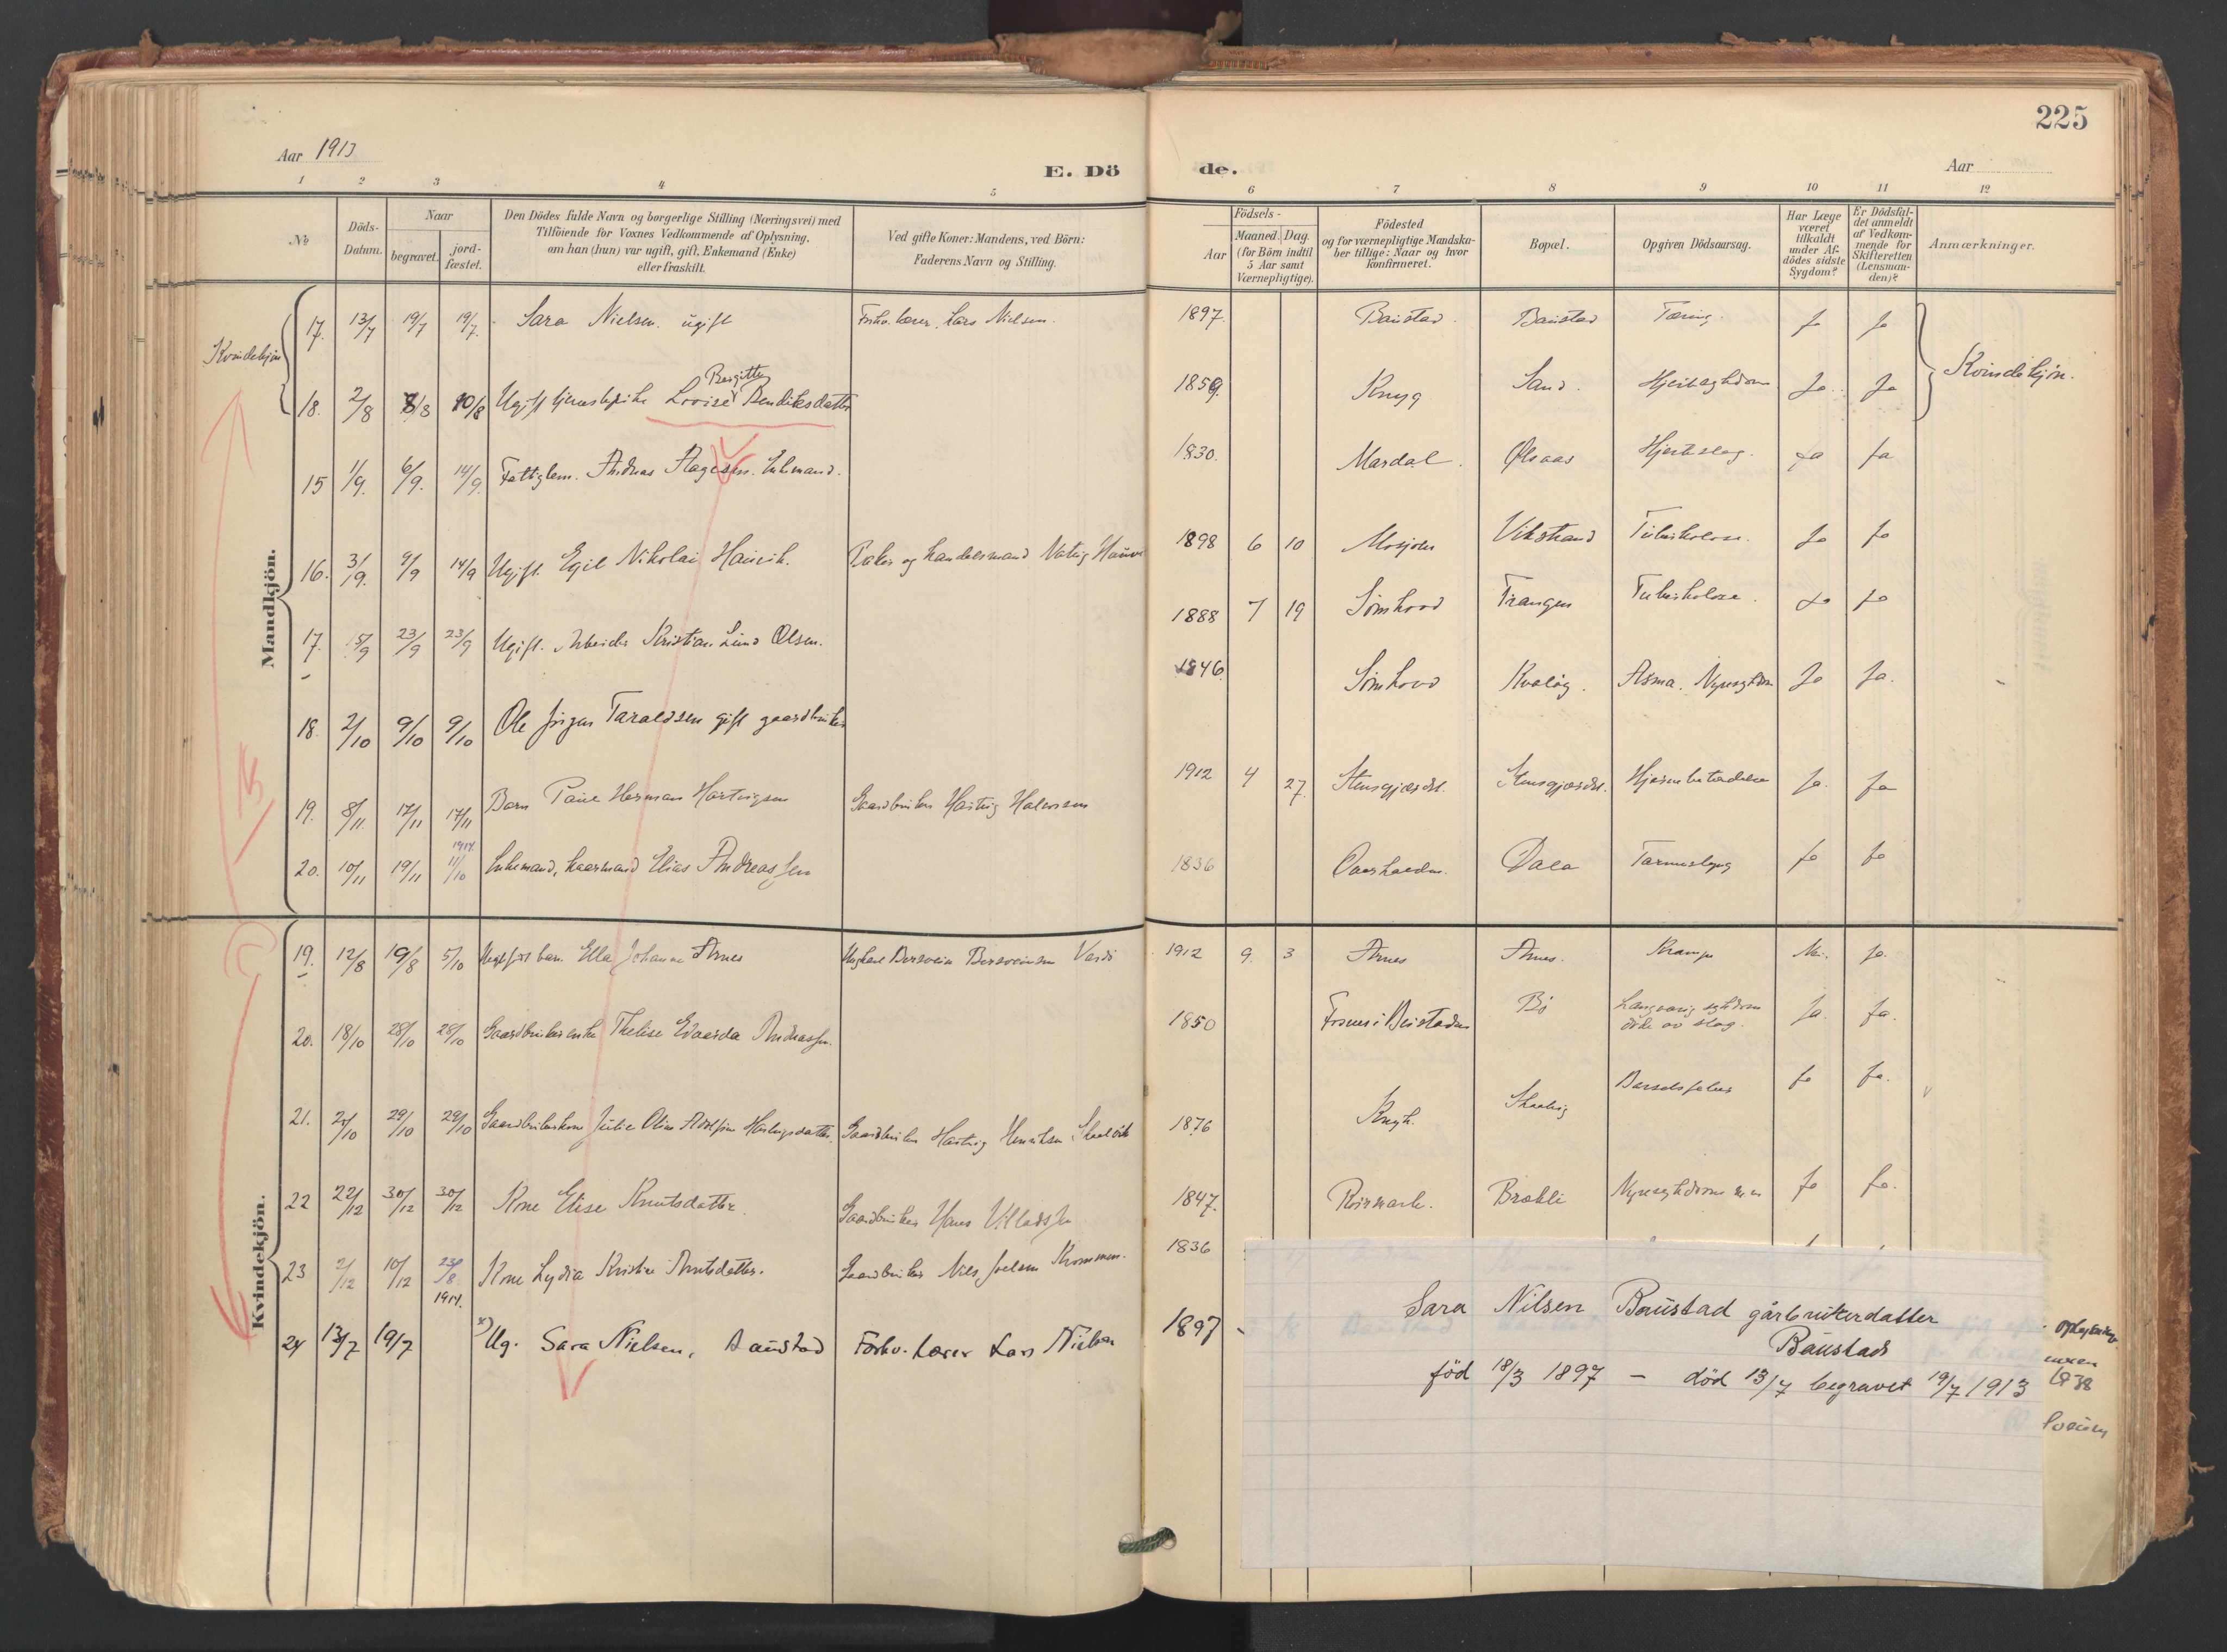 225
Aar 1913
E. Dö
de.
Aar
1 2 3 4 5 6 7 8 9 10 11 12
№
Döds-
Datum.
Naar
begravet.
jord-
fæstet.
Den Dödes fulde Navn og borgerlige Stilling (Næringsvei) med
Tilföiende for Voxnes Vedkommende af Oplysning,
om han (hun) var ugift, gift, Enkemand (Enke)
eller fraskilt.
Ved gifte Koner: Mandens, ved Börn:
Faderens Navn og Stilling.
Födsels-
Aar
Maaned. Dag.
(for Börn indtil
5 Aar samt
Værnepligtige).
Födested
og for værnepligtige Mandska-
ber tillige: Naar og hvor
konfirmeret.
Bopæl.
Opgiven Dödsaarsag.
Har Læge
været
tilkaldt
under Af-
dödes sidste
Sygdom?
Er Dödsfal-
det anmeldt
af Vedkom-
mende for
Skifteretten
(Lensman-
den)?
Anmærkninger.
Kvindekjön
17. 13/7 19/7 19/7. Sara Nielsen. ugift Forhv. lærer. Lars Nielsen. 1897. Baustad. Baustad Tæring. Ja Ja
Kvindekjön.
Bergitte
18. 2/8 8/8 10/8 Ugift tjenestepike Lovise Bendiksdatter 1859. Knyg Sand. Hjertesygdom Ja Ja
Mandkjön.
15 1/9. 6/9. 14/9. Fattiglem. Andreas Aagesen. Enkemand. 1830. Mardal. Olsaas Hjerteslag. Ja Ja
16. 3/9. 9/9 14/9 Ugift. Egil Nikolai Hauvik. og handelsmand 1898 6 10 Mosjøen Vikstrand Tuberkolose. Ja Ja
17. 15/9 23/9 23/9 Ugift. Arbeider Kristian Lind Olsen. 1888 7 19 Sömhovd Trangen Tuberkolose. Ja Ja
18. 2/10 9/10 9/10 Ole Jörgen Taraldsen gift gaardbruker 1846. Sömhovd Kvalög. Asma. Nyresygdom Ja Ja.
19. 8/11. 17/11 17/11 Barn Paul Herman Hartvigsen Gaardbruker Hartvig Halvorsen 1912 4 27. Stensgjerdet. Stensgjerdet. Hjernebetændelse Ja. Ja
1914.
20. 10/11 19/11 11/10 Enkemand, kaarmand Elias Andreassen 1836 Dala Tarmeslyng Ja Ja
Kvindekjön.
19. 12/8 19/8 5/10 barn. Ella Johanne Arnes Ungkarl 1912 9. 3 Arnes Arnes. Krampe Nei. Ja.
20. 18/10 28/10 28/10 Gaardbrukerenke Thelise Edvarda Andreassen. 1850 Bö Langvarig sygdom Ja. Ja.
döde av slag.
21. 29/10 29/10 Gaardbrukerkone Julie Oline Hartvigsdatter. Gaardbruker Hartvig Henriksen 1876 Knyh. Barselsfeber Ja Ja.
22 22/12 30/12 30/12 Kone Elise Knutsdatter. Gaardbruker Hans Villadsen 1847. Brækli Nyresygdom m.m Ja Ja.
23 2/12 10/12 23/8. Kone Lydia Kristine Knutsdatter. Gaardbruker Nils Joelsen 1836
1914.
24 13/7 19/7 x) Ug. Sara Nielsen, Baustad Forhv. Lærer Lars Nielsen 1897
Sara Nilsen Baustad gårbrukerdatter
Baustad
föd 18/3 1897 — död 13/7 begravet 19/7 1913
1938